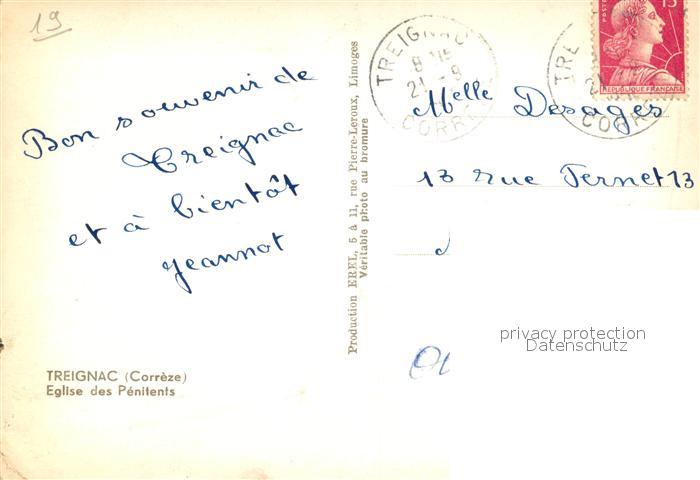 19
Bon souvenir de
Treignac
et à bientôt
Jeannot
TREIGNAC (Corrèze)
Eglise des Pénitents
Production EREL, 5 à 11, rue Pierre-Leroux, Limoges
Véritable photo au bromure
TREIGNAC
21 - 8
CORR
POSTES
15
REPUBLIQUE FRANÇAISE
TRE
21
CORR
Melle Desages
13 rue Fernet 13
privacy protection
Datenschutz